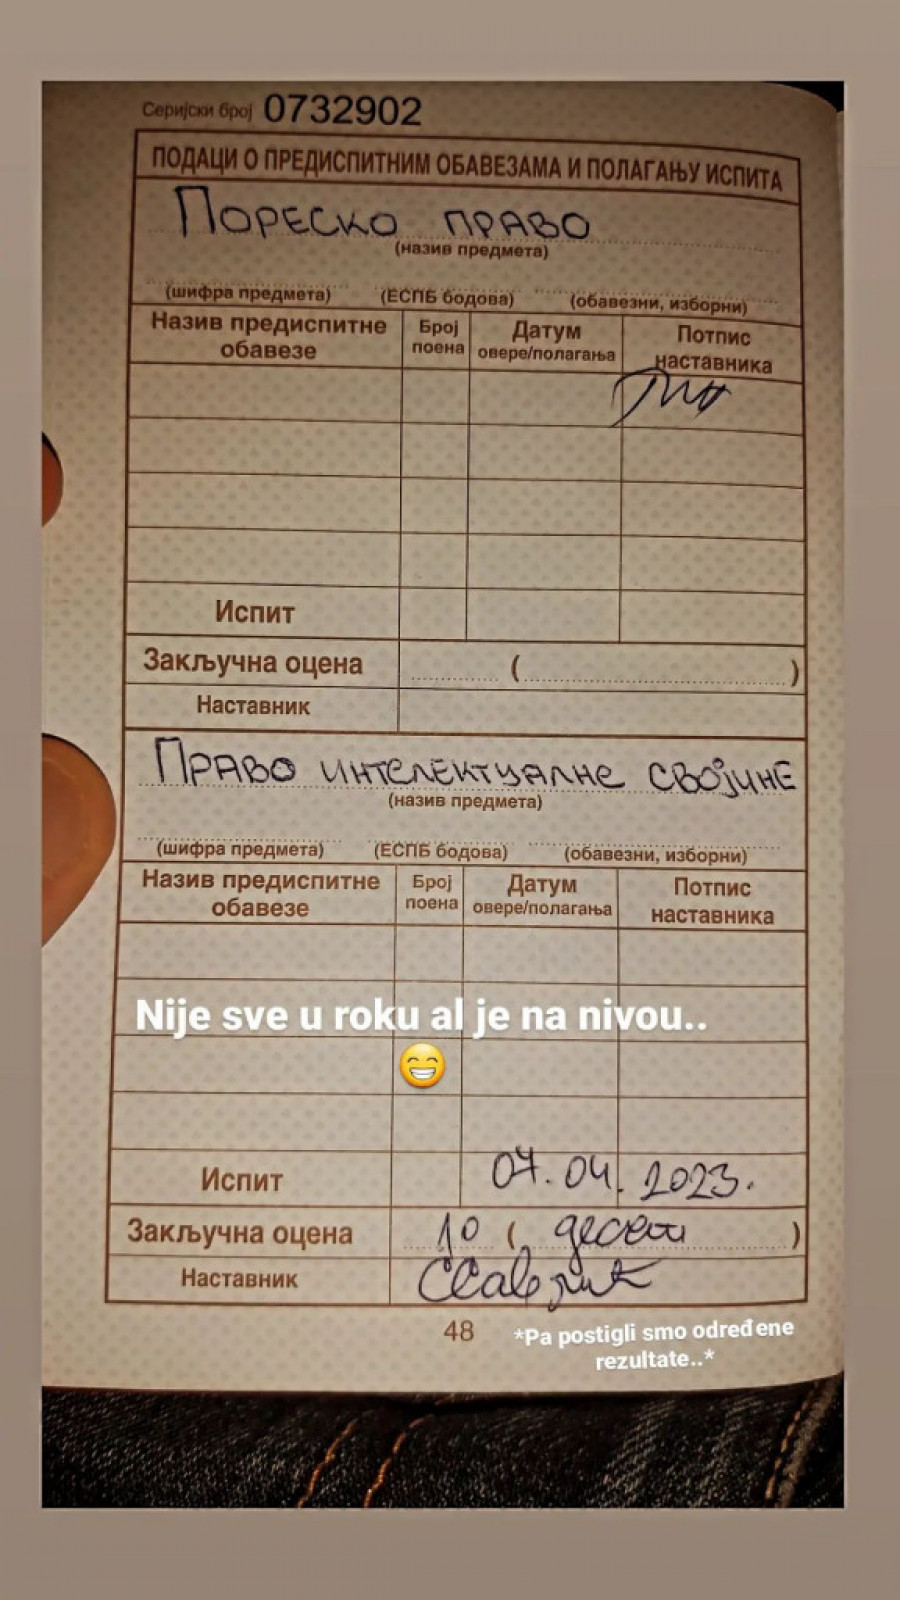 Серијски број 0732902
ПОДАЦИ О ПРЕДИСПИТНИМ ОБАВЕЗАМА И ПОЛАГАЊУ ИСПИТА
Пореско право
(назив предмета)
(шифра предмета) (ЕСПБ бодова) (обавезни, изборни)
Назив предиспитне обавезе Број поена Датум овере/полагања Потпис наставника
Испит
Закључна оцена ( )
Наставник
Право интелектуалне својине
(назив предмета)
(шифра предмета) (ЕСПБ бодова) (обавезни, изборни)
Назив предиспитне обавезе Број поена Датум овере/полагања Потпис наставника
Nije sve u roku al je na nivou..
😁
Испит 07.04.2023.
Закључна оцена 10 ( десет )
Наставник
48
*Pa postigli smo određene
rezultate..*